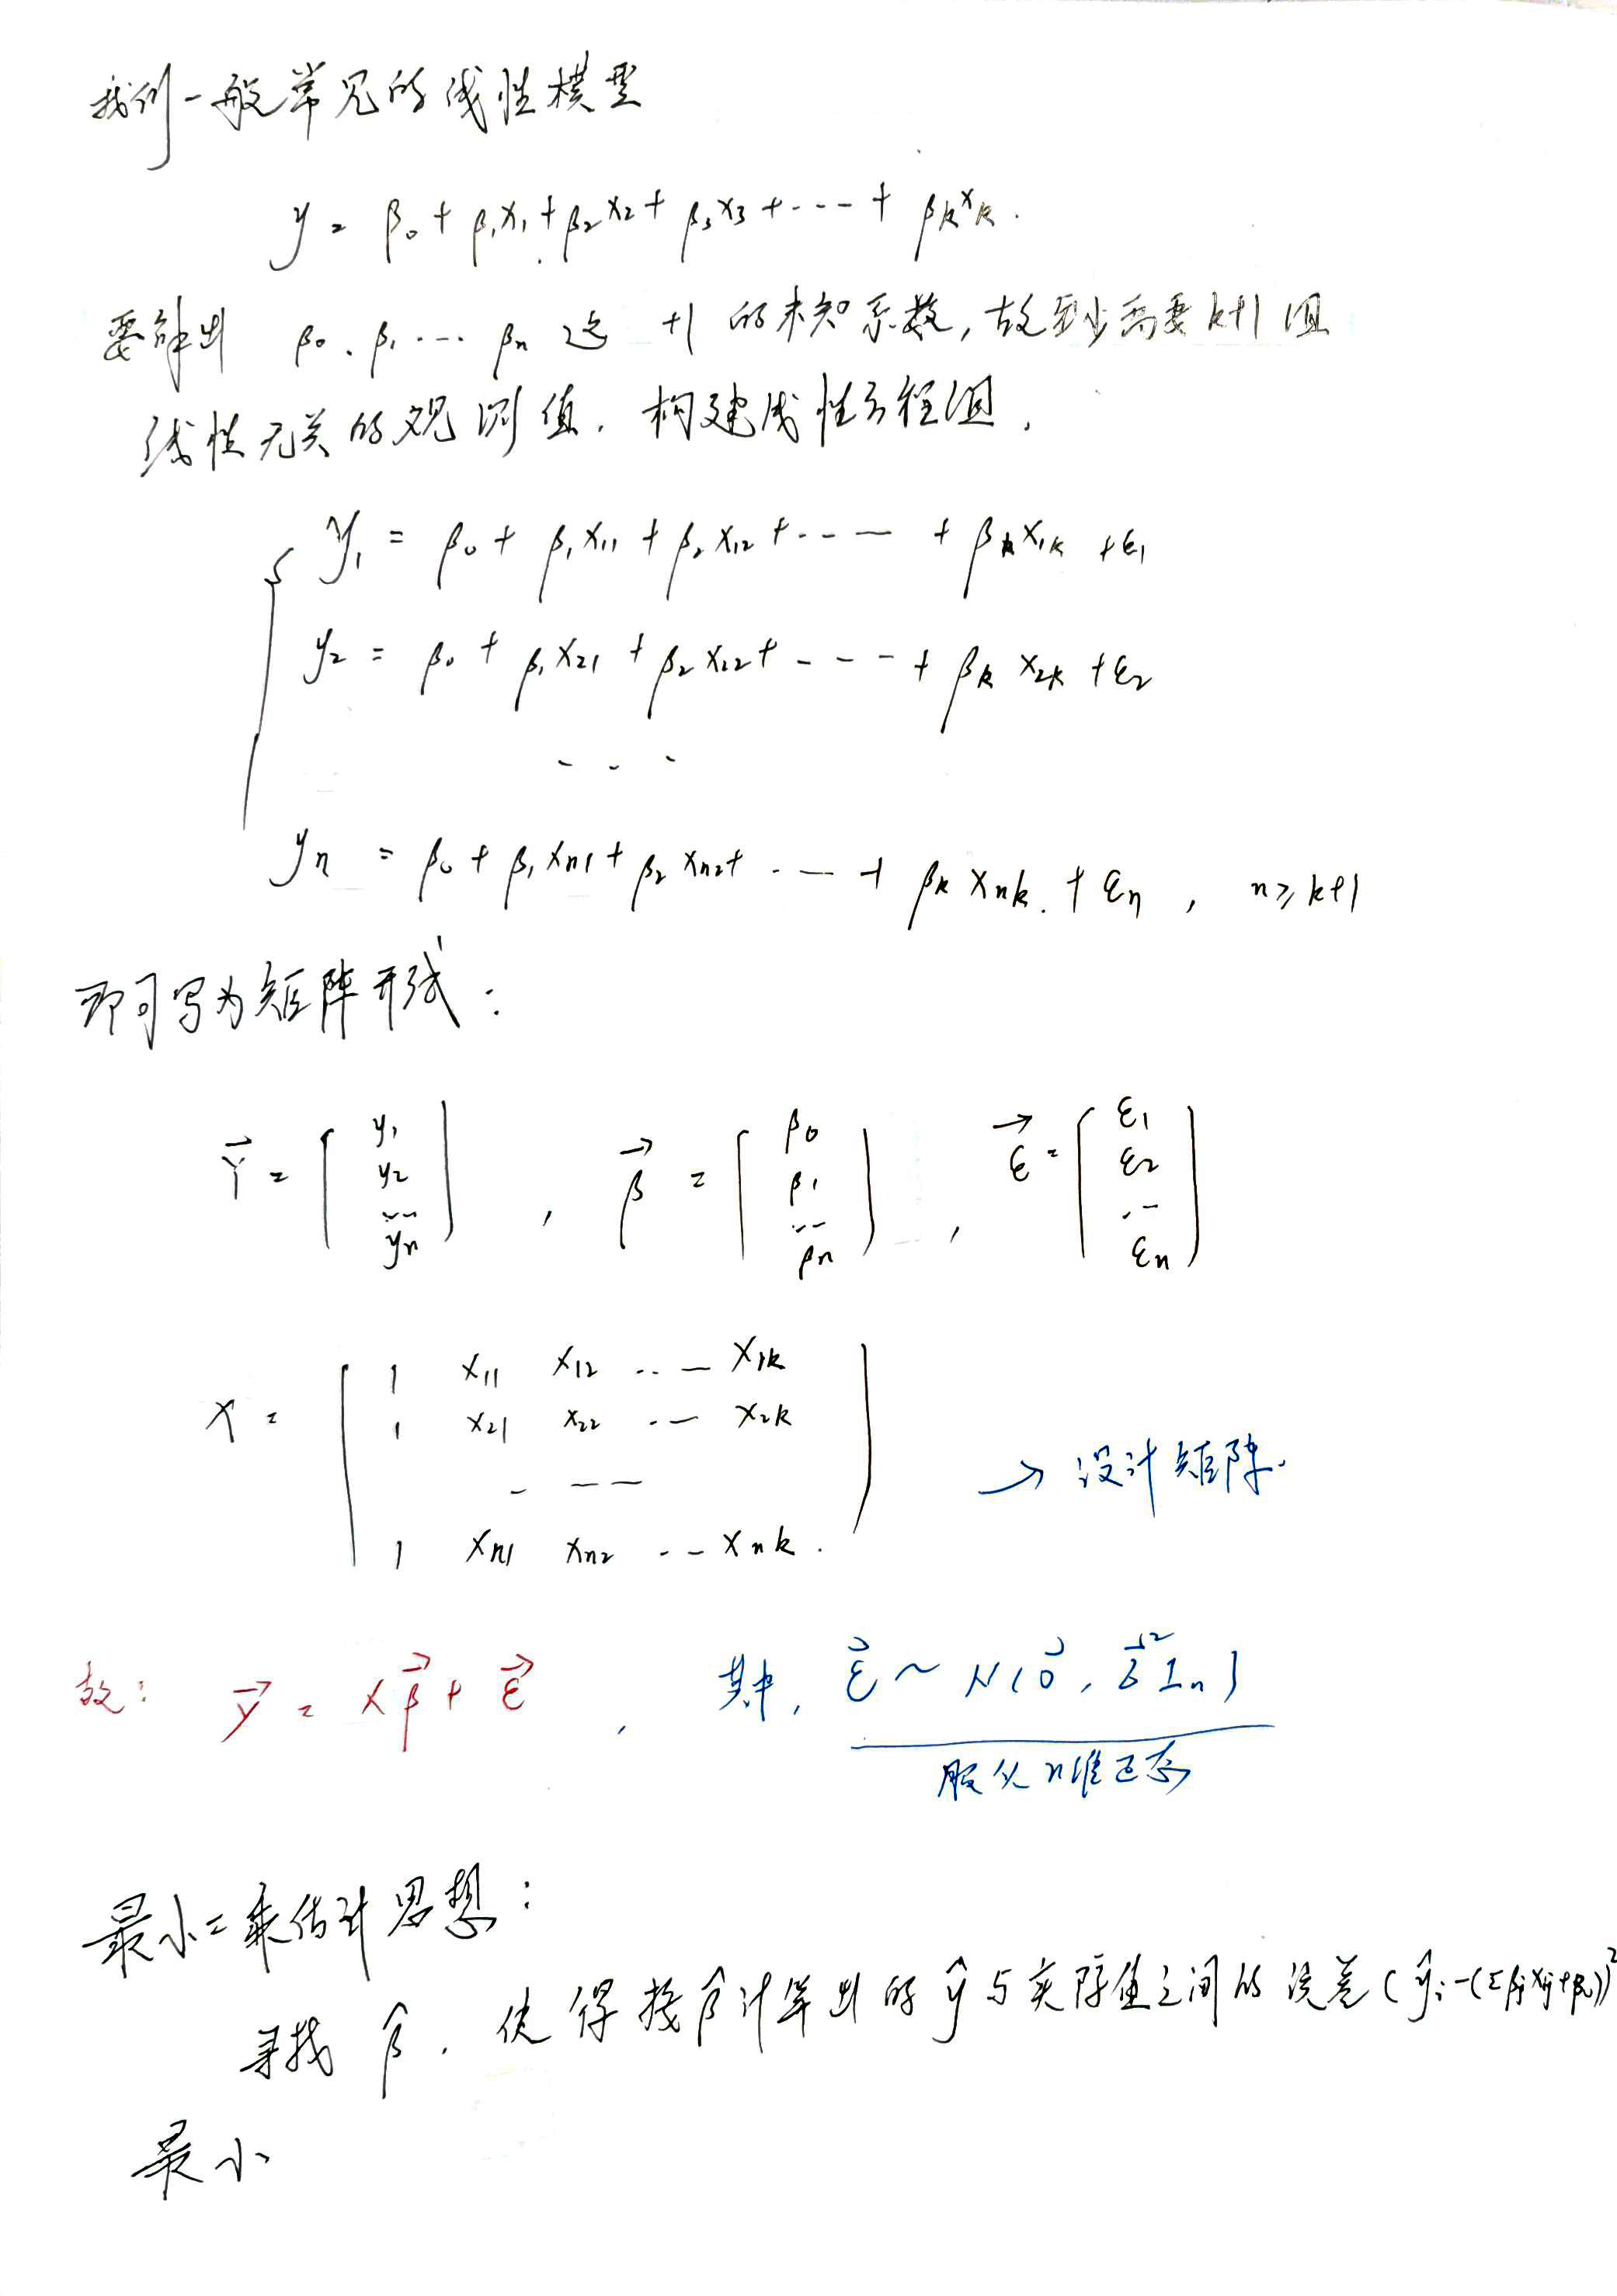 我们一般常见的线性模型
y = β₀ + β₁x₁ + β₂x₂ + β₃x₃ + ···· + βₖxₖ.
要解出 β₀、β₁ ··· βₙ 这 +1 的未知系数,故至少需要k+1组
线性无关的观测值. 构建线性方程组.
y₁ = β₀ + β₁x₁₁ + β₂x₁₂ + ···· + βₖx₁ₖ + ε₁
y₂ = β₀ + β₁x₂₁ + β₂x₂₂ + ···· + βₖx₂ₖ + ε₂
· · ·
yₙ = β₀ + β₁xₙ₁ + β₂xₙ₂ + ··· + βₖxₙₖ. + εₙ , n ≥ k+1
即可写为矩阵形式:
Y⃗ = [ y₁ y₂ ··· yₙ ] , β⃗ = [ β₀ β₁ ··· βₙ ] , ε⃗ = [ ε₁ ε₂ ··· εₙ ]
X = [
1 x₁₁ x₁₂ ··· x₁ₖ
1 x₂₁ x₂₂ ··· x₂ₖ
· · · → 设计矩阵.
1 xₙ₁ xₙ₂ ··· xₙₖ. ]
故: y⃗ = Xβ⃗ + ε⃗ , 其中, ε⃗ ~ N(0⃗, σ⃗²Iₙ)
服从n维正态
最小二乘估计思想:
寻找 β̂ . 使得按β̂计算出的ŷ与实际值之间的误差(ŷᵢ-(Σβⱼxᵢⱼ+β₀))²
最小